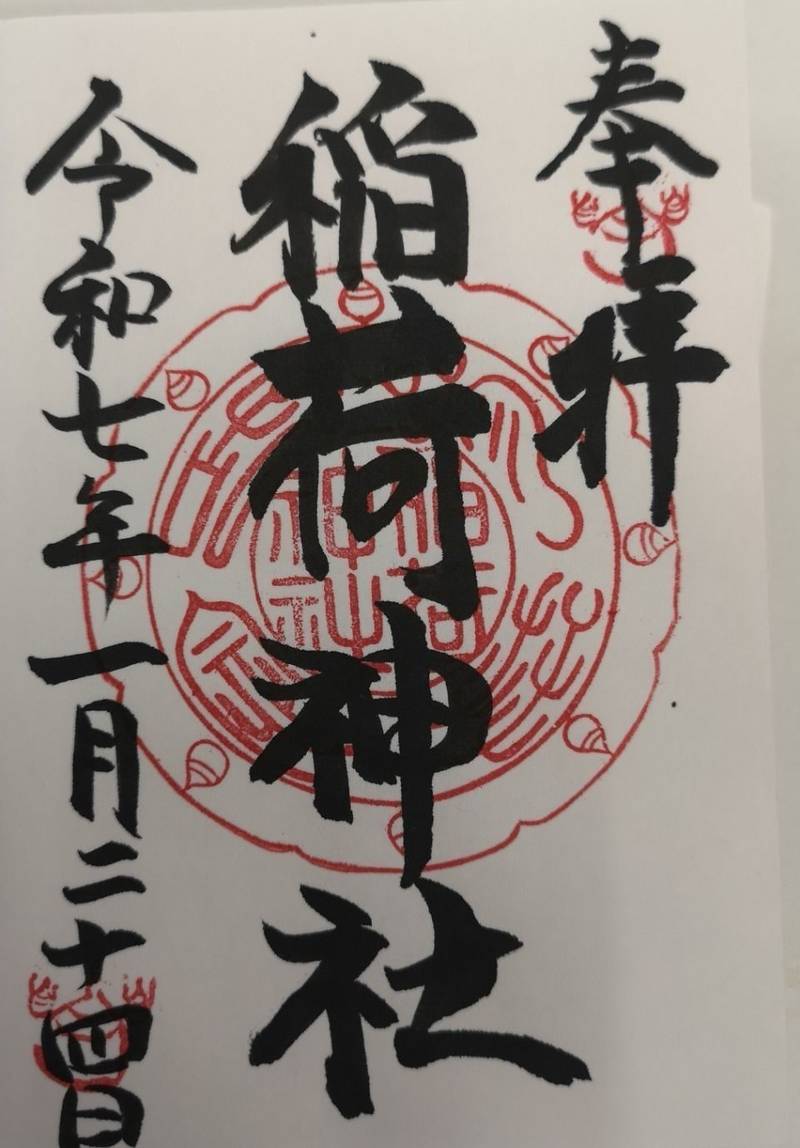 奉拝
稲荷神社
令和七年一月二十四日